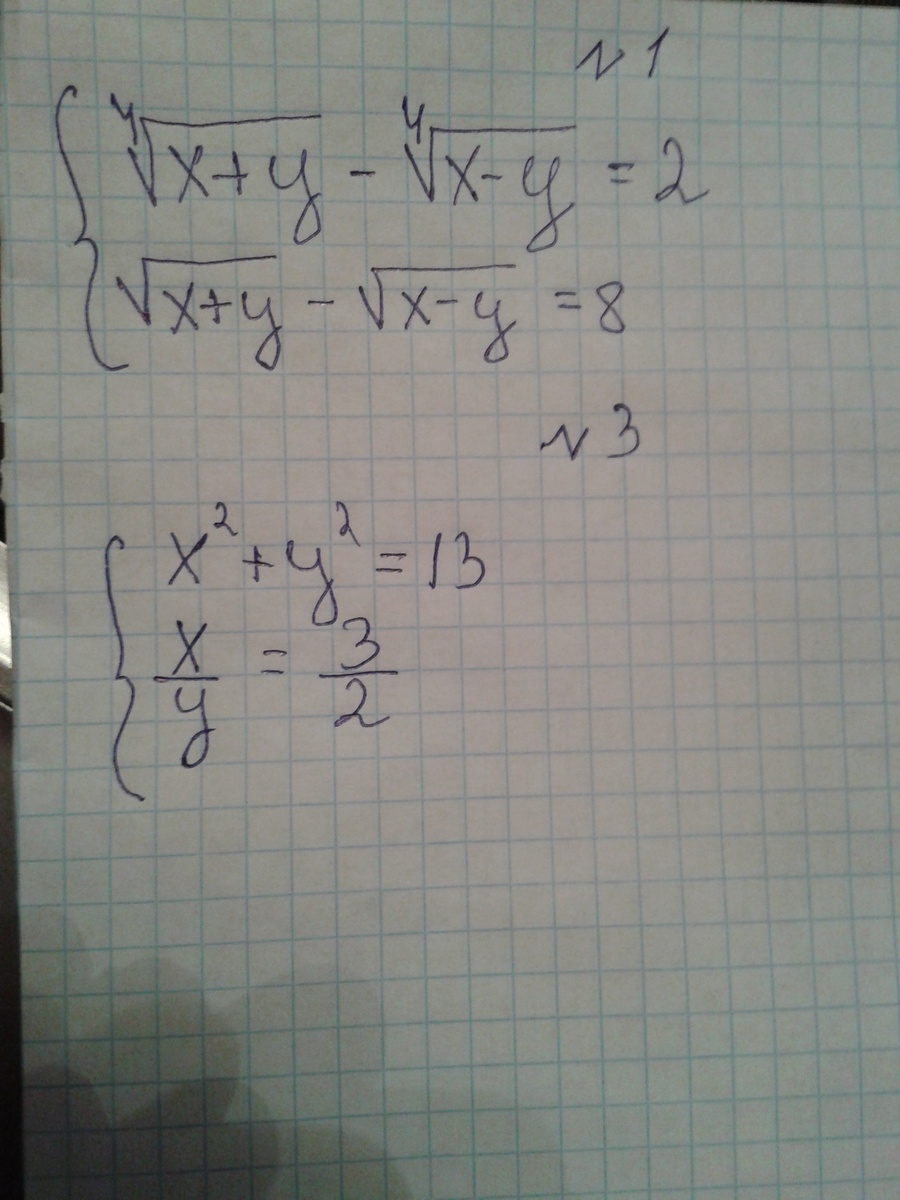 №1
⁴√(x+y) - ⁴√(x-y) = 2
√(x+y) - √(x-y) = 8
№3
x² + y² = 13
x/y = 3/2